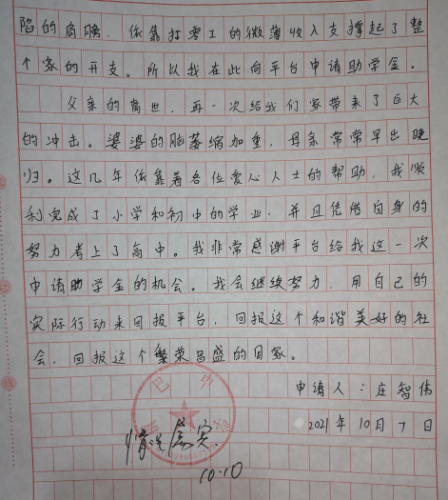 陷的肩膀，依靠打零工的微薄收入支撑起了整
个家的开支。所以我在此向平台申请助学金。
父亲的离世，再一次给我们家带来了巨大
的冲击。婆婆的脑萎缩加重，母亲常常早出晚
归。这几年依靠着各位爱心人士的帮助，我顺
利完成了小学和初中的学业，并且凭借自身的
努力考上了高中。我非常感谢平台给我这一次
申请助学金的机会。我会继续努力，用自己的
实际行动来回报平台，回报这个和谐美好的社
会，回报这个繁荣昌盛的国家。
申请人：庄智伟
2021年10月7日
情况属实.
10.10